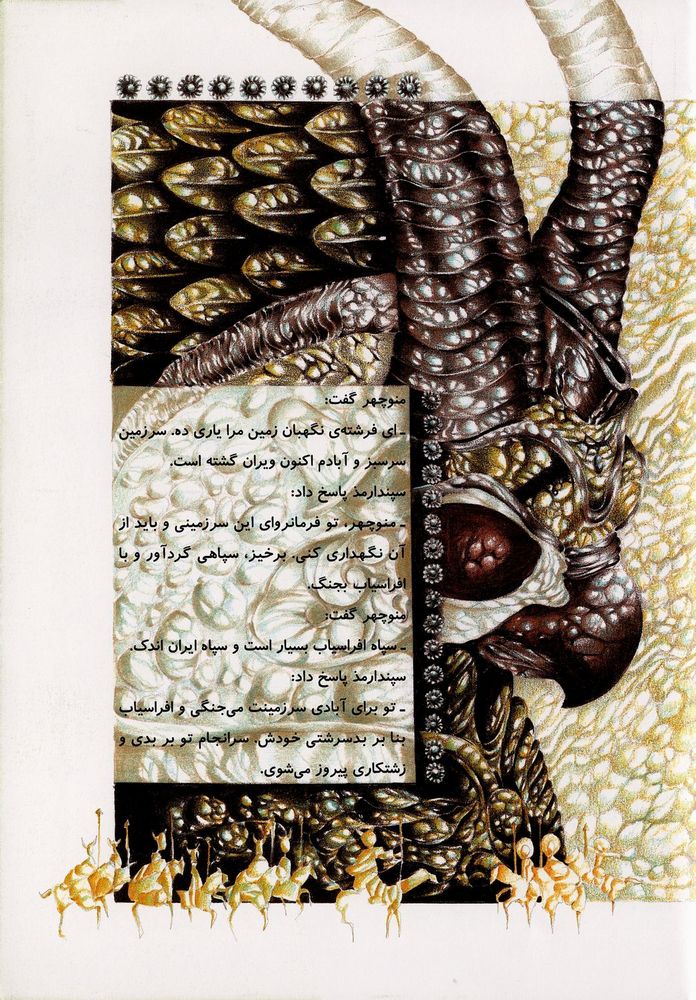 منوچهر گفت:
ـ ای فرشته‌ی نگهبان زمین مرا یاری ده. سرزمین
سرسبز و آبادم اکنون ویران گشته است.
سپندارمذ پاسخ داد:
ـ منوچهر، تو فرمانروای این سرزمینی و باید از
آن نگهداری کنی. برخیز، سپاهی گردآور و با
افراسیاب بجنگ.
منوچهر گفت:
ـ سپاه افراسیاب بسیار است و سپاه ایران اندک.
سپندارمذ پاسخ داد:
ـ تو برای آبادی سرزمینت می‌جنگی و افراسیاب
بنا بر بدسرشتی خودش. سرانجام تو بر بدی و
زشتکاری پیروز می‌شوی.